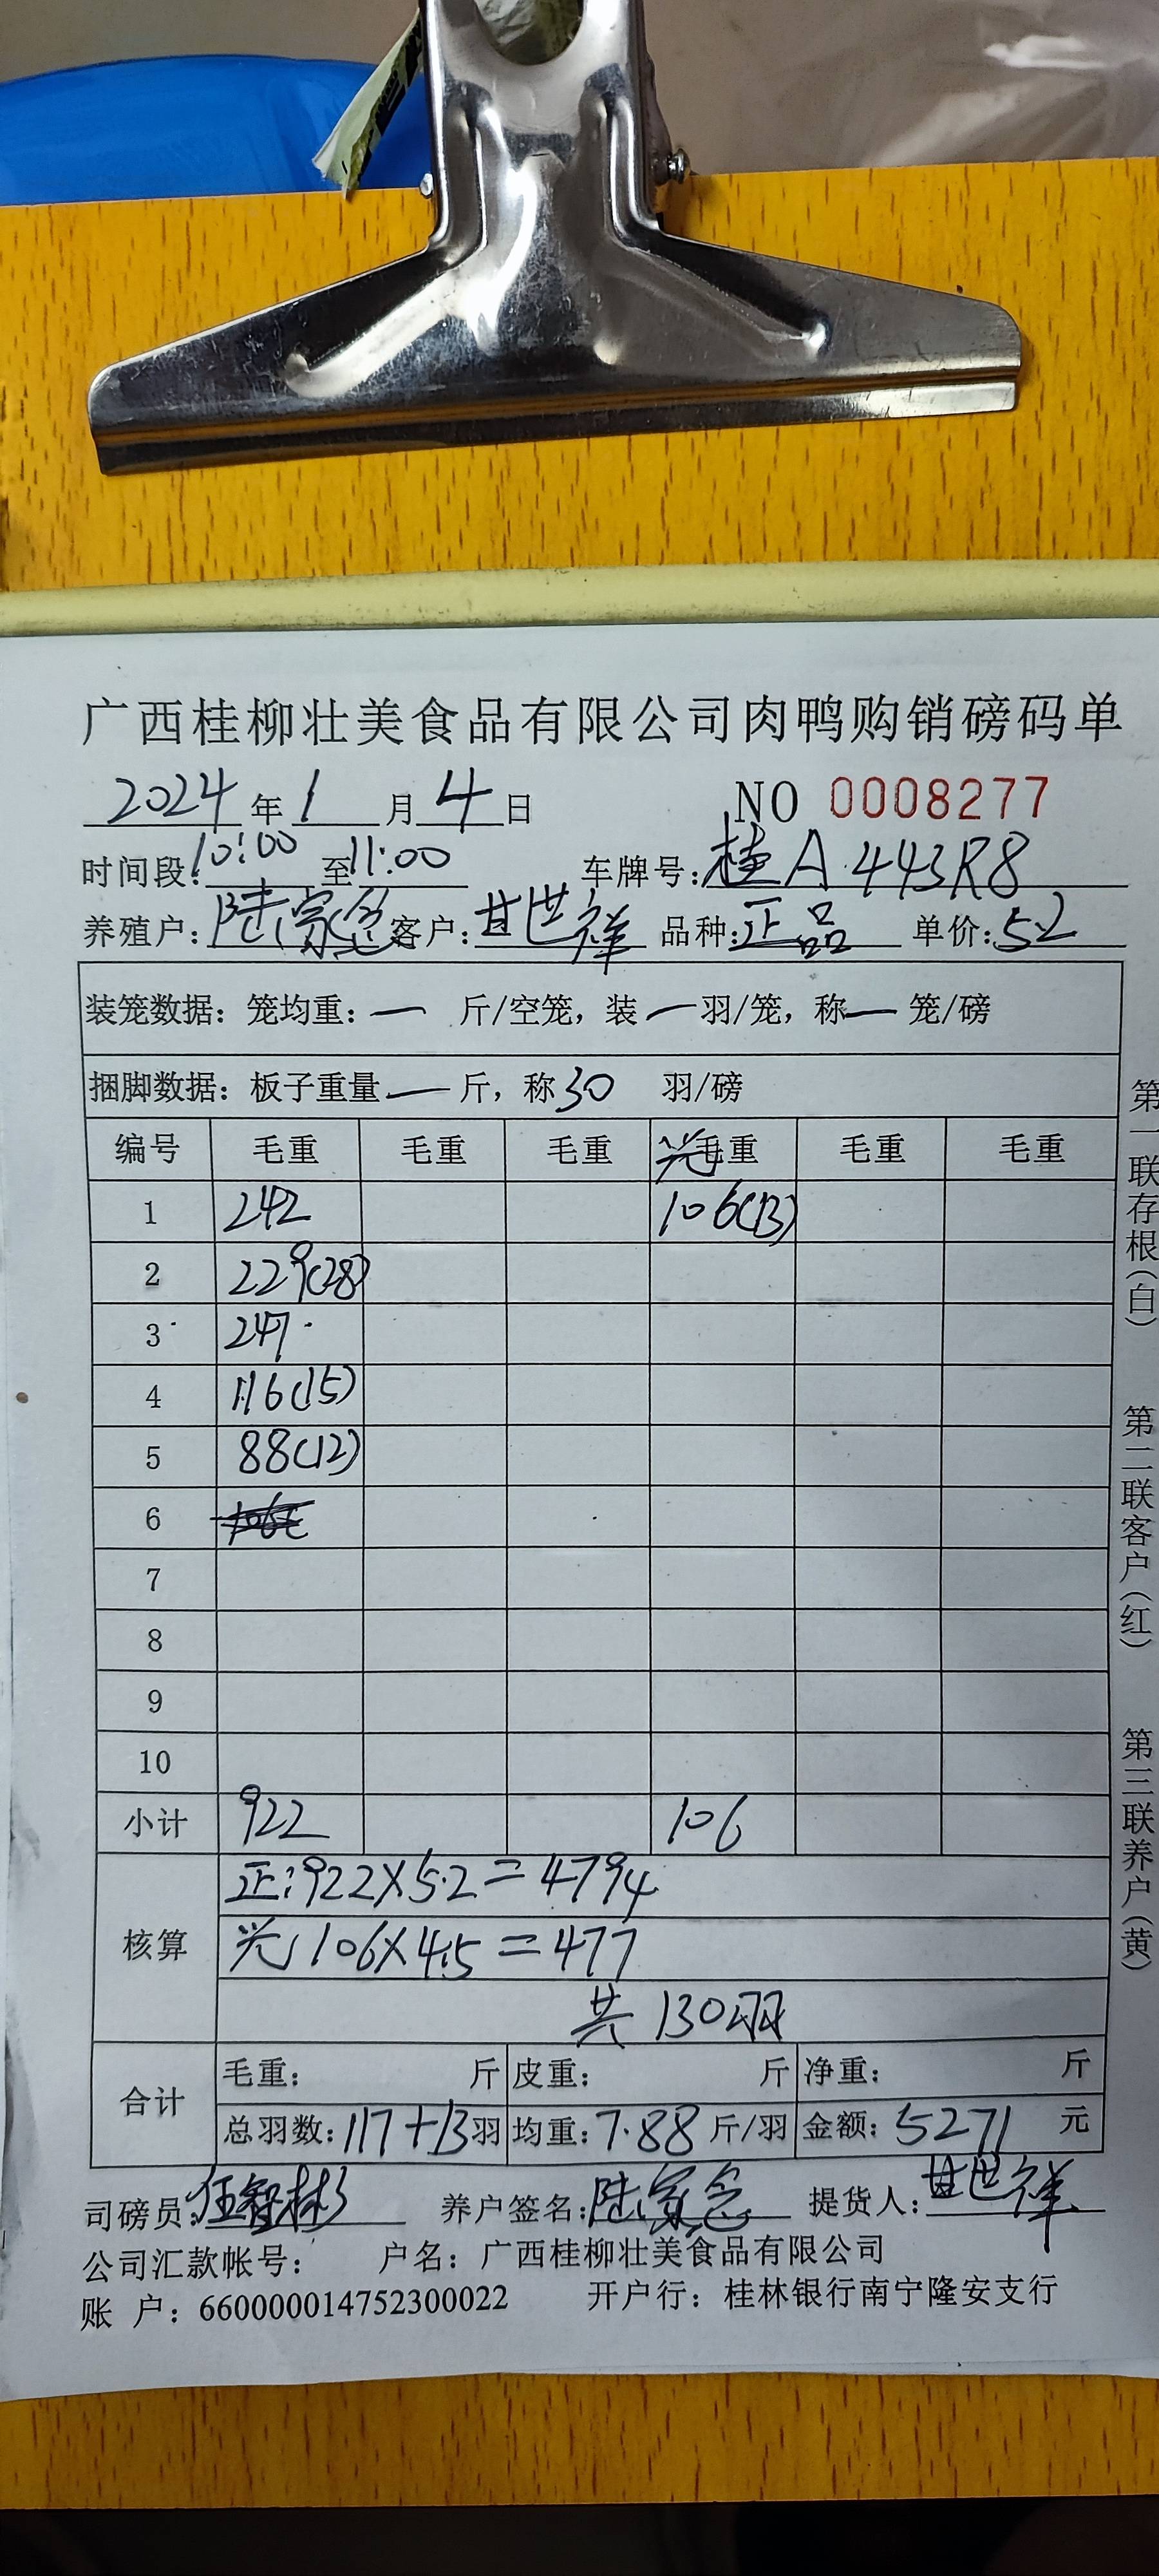 广西桂柳壮美食品有限公司肉鸭购销磅码单
2024年1月4日 NO 0008277
时间段:10:00至11:00 车牌号:桂A·443R8
养殖户:陆家念 客户:甘世祥 品种:正品 单价:5.2
装笼数据:笼均重:一 斤/空笼,装一羽/笼,称一笼/磅
捆脚数据:板子重量一斤,称30 羽/磅
编号 毛重 毛重 毛重 毛重 毛重 毛重
1 242 106(13)
2 229(28)
3 247
4 116(15)
5 88(12)
6
7
8
9
10
小计 922 106
核算
正:922×5.2=4794
光 106×4.5=477
共130羽
合计
毛重: 斤 皮重: 斤 净重: 斤
总羽数:117+13羽 均重:7.88斤/羽 金额:5271 元
司磅员:伍智彬 养户签名:陆家念 提货人:甘世祥
公司汇款帐号: 户名:广西桂柳壮美食品有限公司
账 户:660000014752300022 开户行:桂林银行南宁隆安支行
第一联存根(白)
第二联客户(红)
第三联养户(黄)